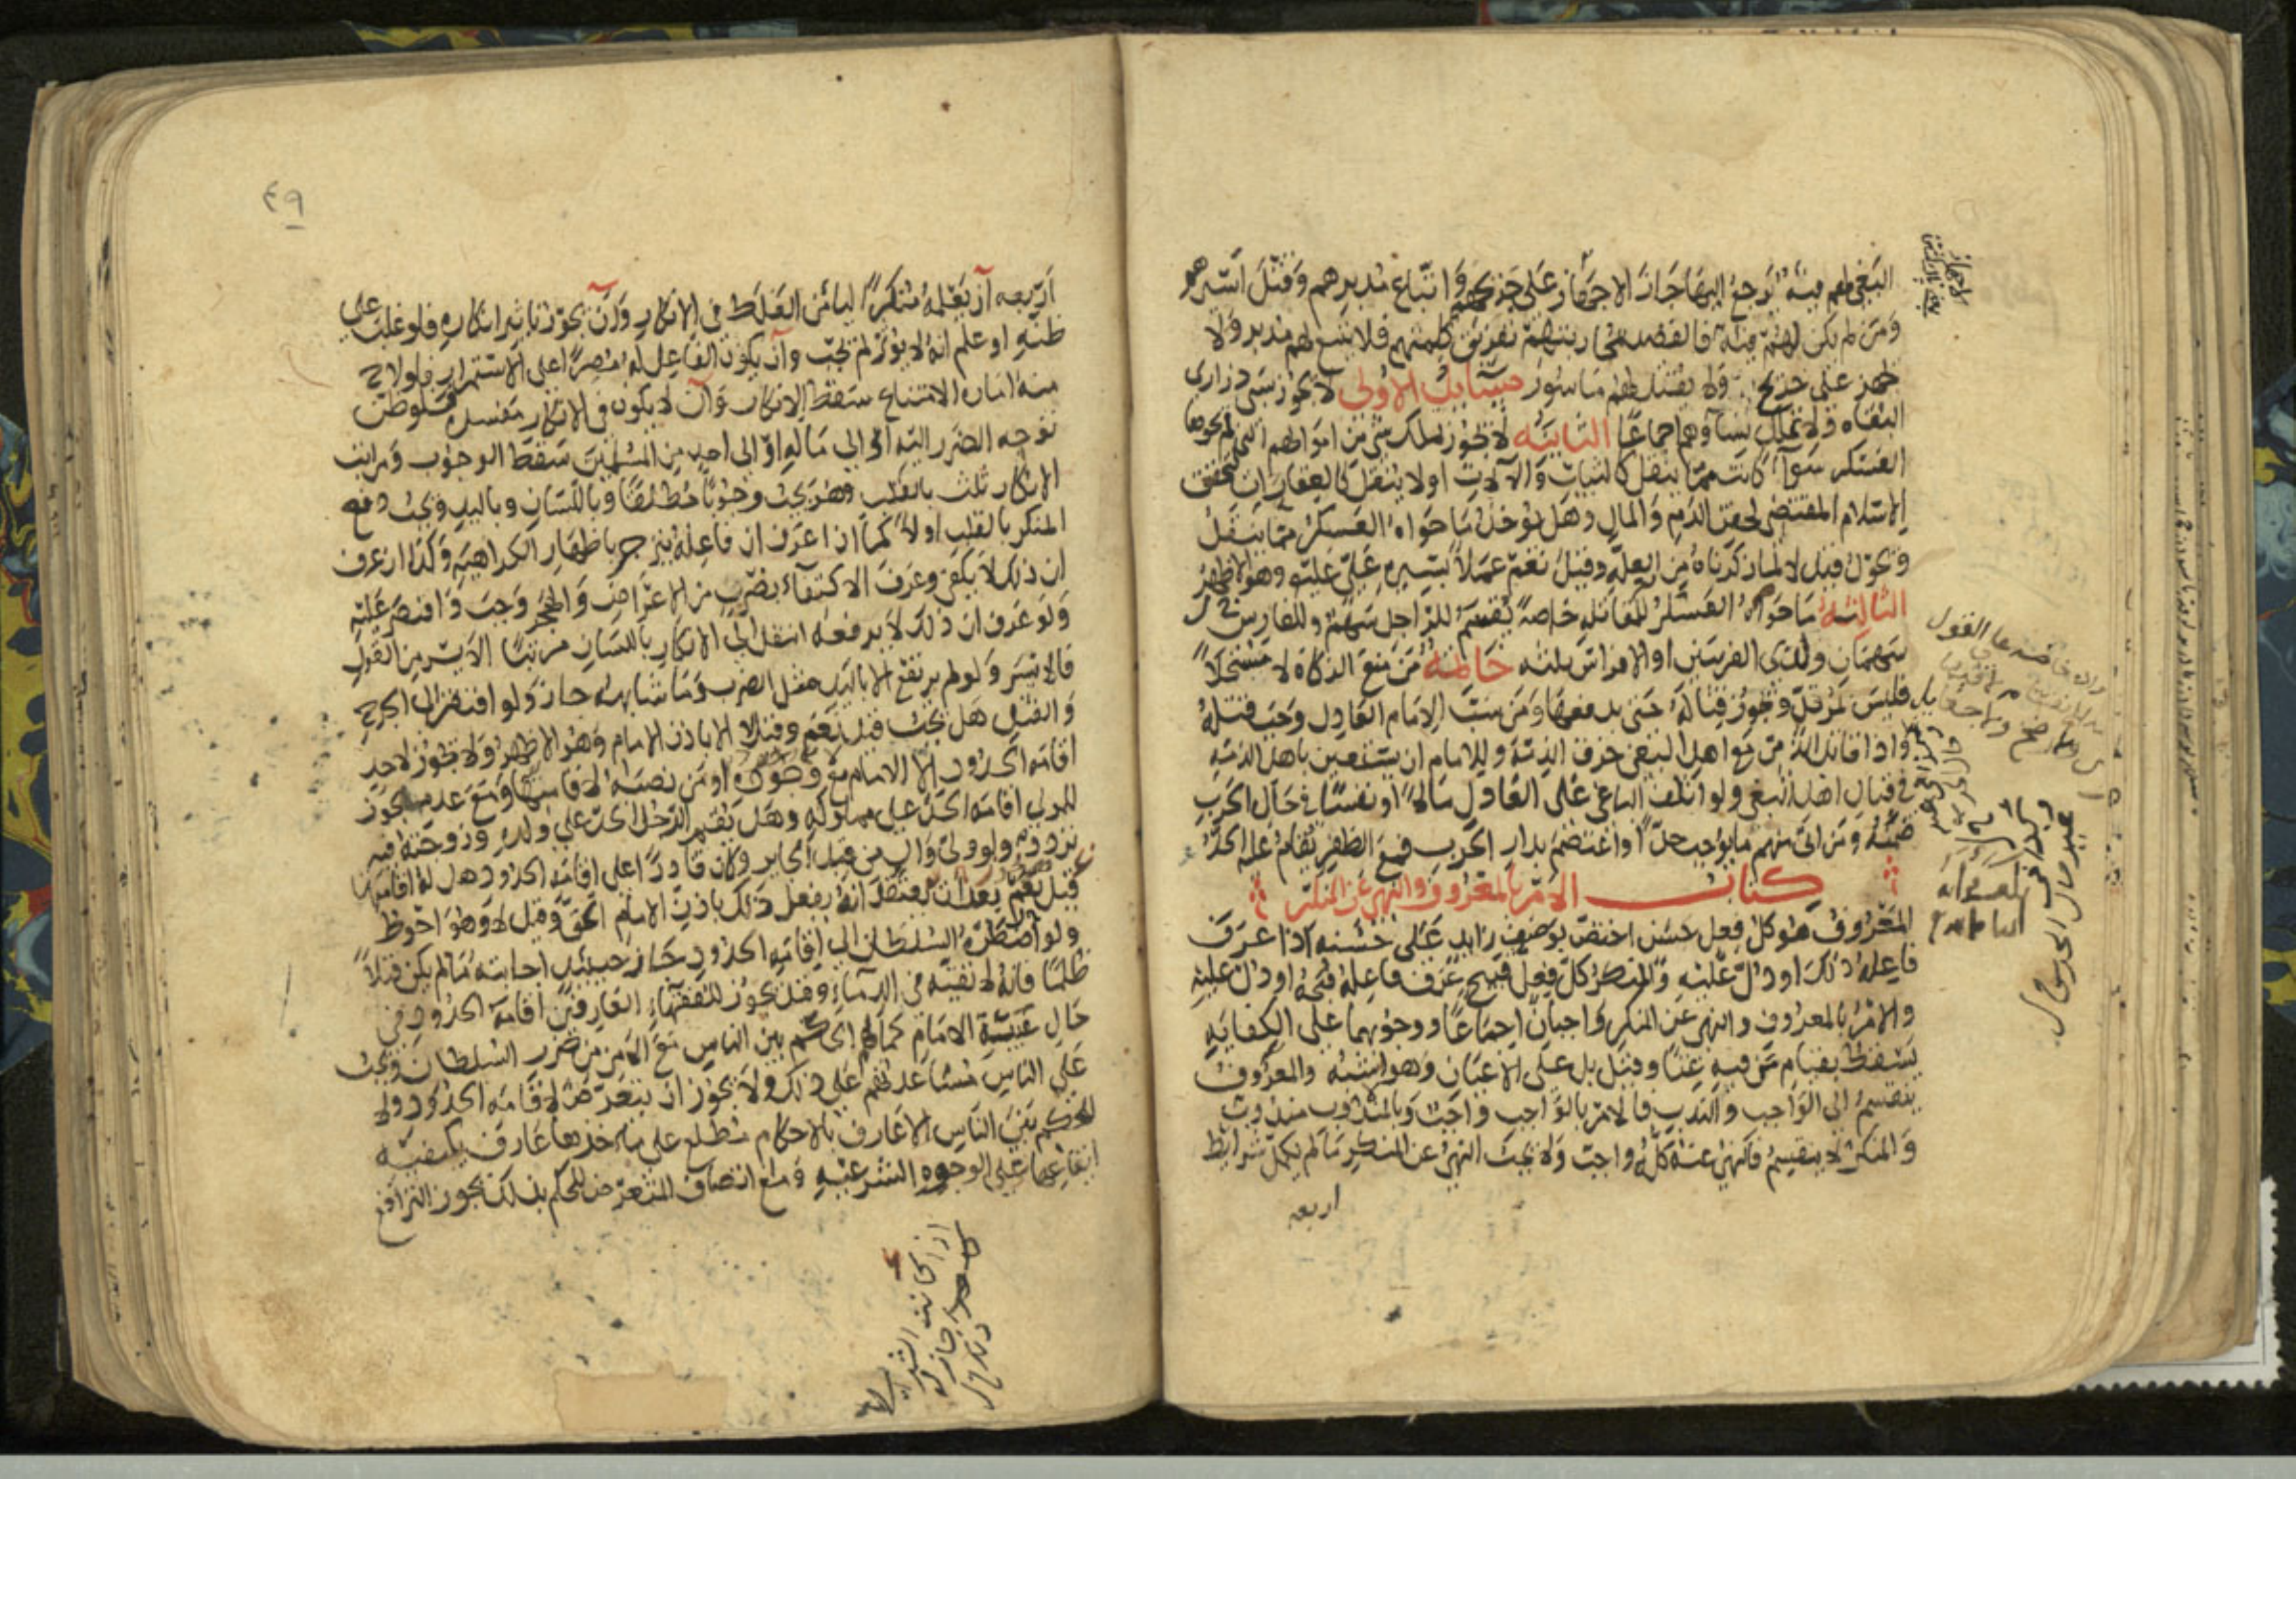 البغى لهم فئة يرجع اليها جاز الاجهاز على جريحهم واتباع مدبرهم وقتل اسيرهم
ومن لم يكن لهم فئة فالقصد بمحاربتهم تفريق كلمتهم فلا يتبع لهم مدبر ولا
يجهز على جريح ولا يقتل لهم ماسور مسائل الاولى لا يجوز سبى ذرارى
البغاه ولا تملك نساؤهم اجماعا الثانيه لا يجوز تملك شى من اموالهم التى لم يحوها
العسكر سواء كانت مما ينقل كالثياب والآلات اولا ينقل كالعقار لتحقق
الاسلام المقتضى لحقن الدم والمال وهل يوخذ ما حواه العسكر مما ينقل
ويحول قيل لا لما ذكرناه من العلة وقيل نعم عملا بسيره على عليه وهو الاظهر
الثالثة ما حواه العسكر للمقاتله خاصة يقسم للراجل سهم وللفارس
سهمان ولذى الفرسين او الافراس ثلثه خاتمة من منع الزكاة لا مستحلا
فليس بمرتد ويجوز قتاله حتى يدفعها ومن سب الامام العادل وجب قتله
واذا قاتل الذمى مع اهل البغى خرق الذمة وللامام ان يستعين باهل الذمه
فى قتال اهل البغى ولو اتلف الباغى على العادل مالا او نفسا فى حال الحرب
ضمنه ومن اتى منهم ما يوجب حدا واعتصم بدار الحرب فمع الظفر يقام عليه الحد
كتاب الامر بالمعروف والنهى عن المنكر
المعروف هو كل فعل حسن اختص بوصف زايد على حسنه اذا عرف
فاعله ذلك او دل عليه والمنكر كل فعل قبيح عرف فاعله قبحه او دل عليه
والامر بالمعروف والنهى عن المنكر واجبان اجماعا ووجوبهما على الكفايه
يسقط بقيام من فيه غنا وقيل بل على الاعيان وهو اشبه والمعروف
ينقسم الى الواجب والندب فالامر بالواجب واجب وبالمندوب مندوب
والمنكر لا ينقسم فالنهى عنه كله واجب ولا يجب النهى عن المنكر ما لم يكمل شرايط
اربعه
٤٩
اربعه ان يعلمه منكرا ليأمن الغلط فى الانكار وان يجوز تاثير انكاره فلو غلب على
ظنه او علم انه لا يؤثر لم يجب وان يكون الفاعل له مصرا على الاستمرار فلو لاح
منه اماره الامتناع سقط الانكار وان لا يكون فى الانكار مفسدة فلو ظن
توجه الضرر اليه او الى ماله او الى احد من المسلمين سقط الوجوب ومراتب
الانكار ثلث بالقلب وهو يجب وجوبا مطلقا وباللسان وباليد ويجب دفع
المنكر بالقلب اولا كما اذا عرف ان فاعله ينزجر باظهار الكراهية وكذا ان عرف
ان ذلك لا يكفى وعرف الاكتفاء بضرب من الاعراض والهجر وجب واقتصر عليه
ولو عرف ان ذلك لا يرفعه انتقل الى الانكار باللسان مرتبا الايسر من القول
فالايسر ولو لم يرتفع الا باليد مثل الضرب وما شابهه جاز ولو افتقر الى الجرح
والقتل هل يجب قيل نعم وقيل لا الا باذن الامام وهو الاظهر ولا يجوز لاحد
اقامه الحدود الا الامام مع وجوده او من نصبه لاقامتها ومع عدمه يجوز
للمولى اقامه الحد على مملوكه وهل يقيم الرجل الحد على ولده وزوجته فيه
تردد ولو ولى وال من قبل الجاير وكان قادرا على اقامه الحدود هل له اقامتها
قيل نعم بعد ان يعتقد انه يفعل ذلك باذن الامام الحق وقيل لا وهو احوط
ولو اضطره السلطان الى اقامه الحدود جاز حينئذ اجابته ما لم يكن قتلا
ظلما فانه لا تقيه فى الدماء وقيل يجوز للفقهاء العارفين اقامه الحدود فى
حال غيبة الامام كما لهم الحكم بين الناس مع الامن من ضرر السلطان ويجب
على الناس مساعدتهم على ذلك ولا يجوز ان يتعرض لاقامه الحدود ولا
للحكم بين الناس الا عارف بالاحكام مطلع على مآخذها عارف بكيفيه
ايقاعها على الوجوه الشرعيه ومع اتصاف المتعرض للحكم بذلك يجوز الترافع